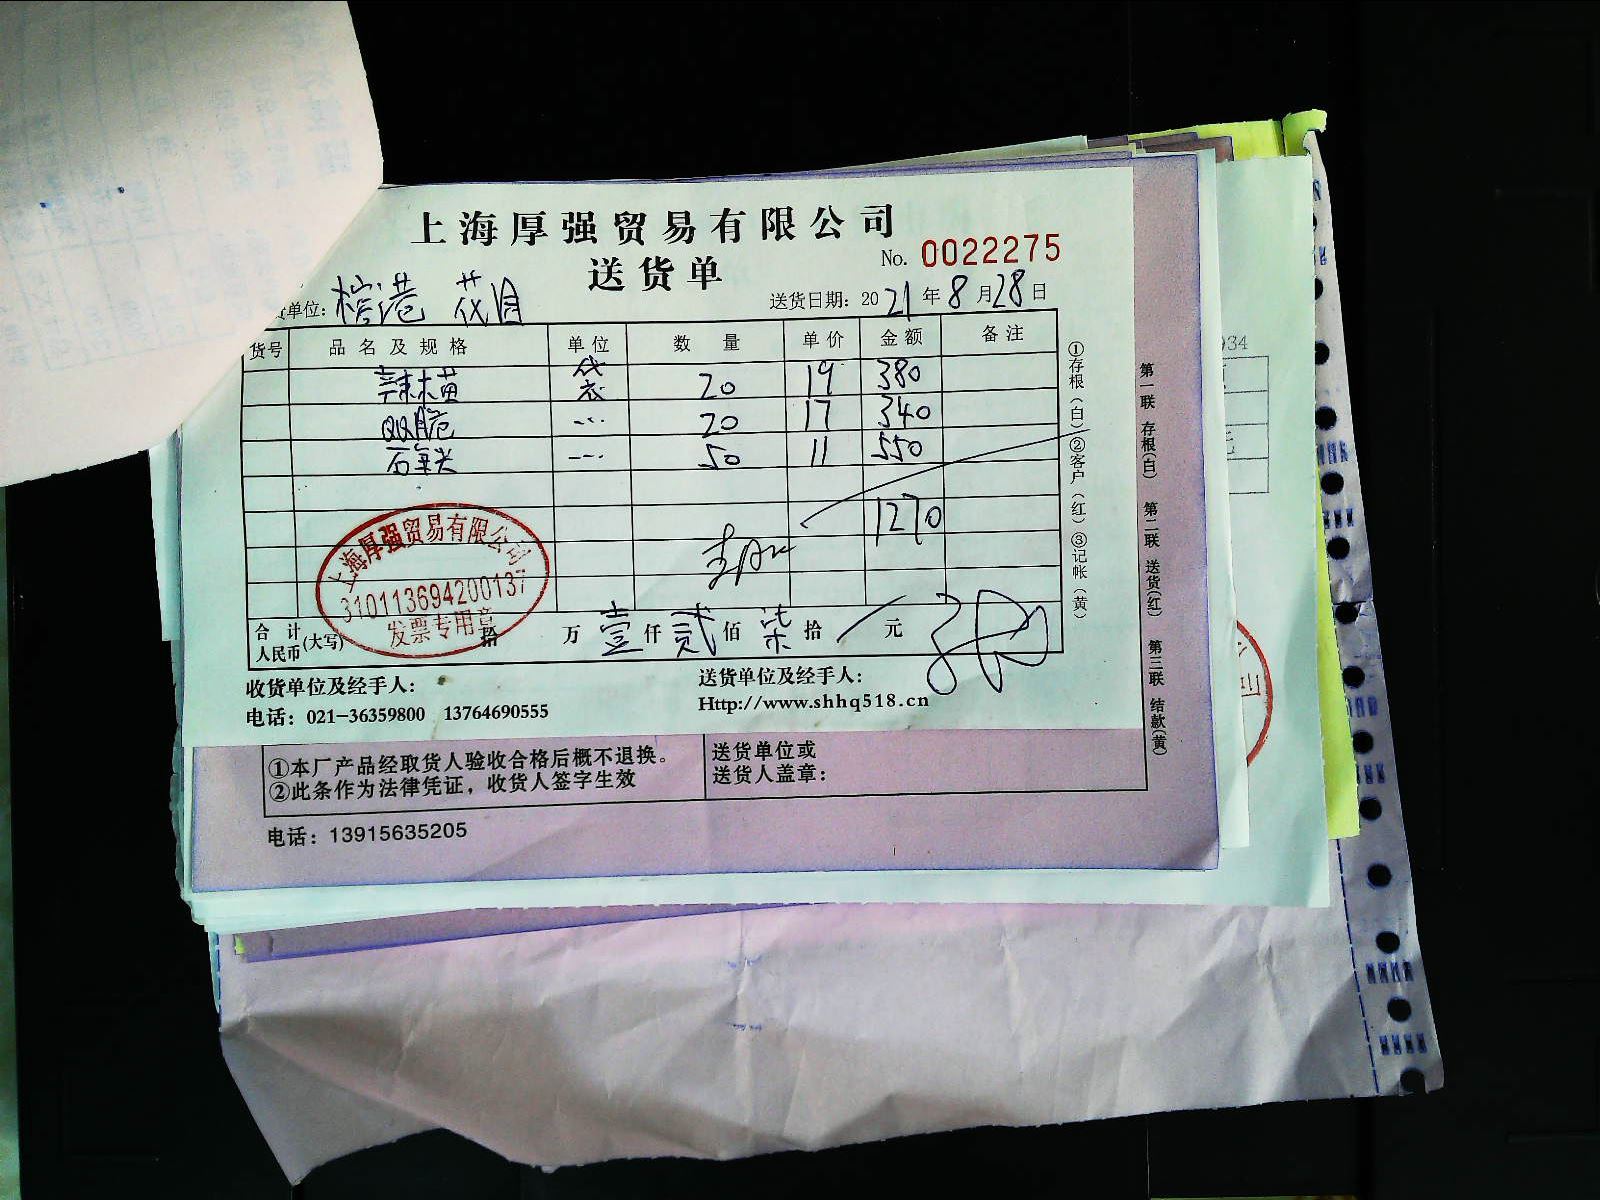 上海厚强贸易有限公司
送货单
No. 0022275
货单位：
送货日期：2021年8月28日
货号 品名及规格 单位 数量 单价 金额 备注
辣 20 19 380
QQ脆 20 17 340
50 11 550
1270
上海厚强贸易有限公司
310113694200137
发票专用章
合计人民币(大写) 拾 万 壹仟 贰佰 柒拾 元
收货单位及经手人：
送货单位及经手人：
电话：021-36359800 13764690555
Http://www.shhq518.cn
①存根（白）②客户（红）③记帐（黄）
第一联 存根(白) 第二联 送货(红) 第三联 结款(黄)
①本厂产品经取货人验收合格后概不退换。
②此条作为法律凭证，收货人签字生效
送货单位或
送货人盖章：
电话：13915635205
934